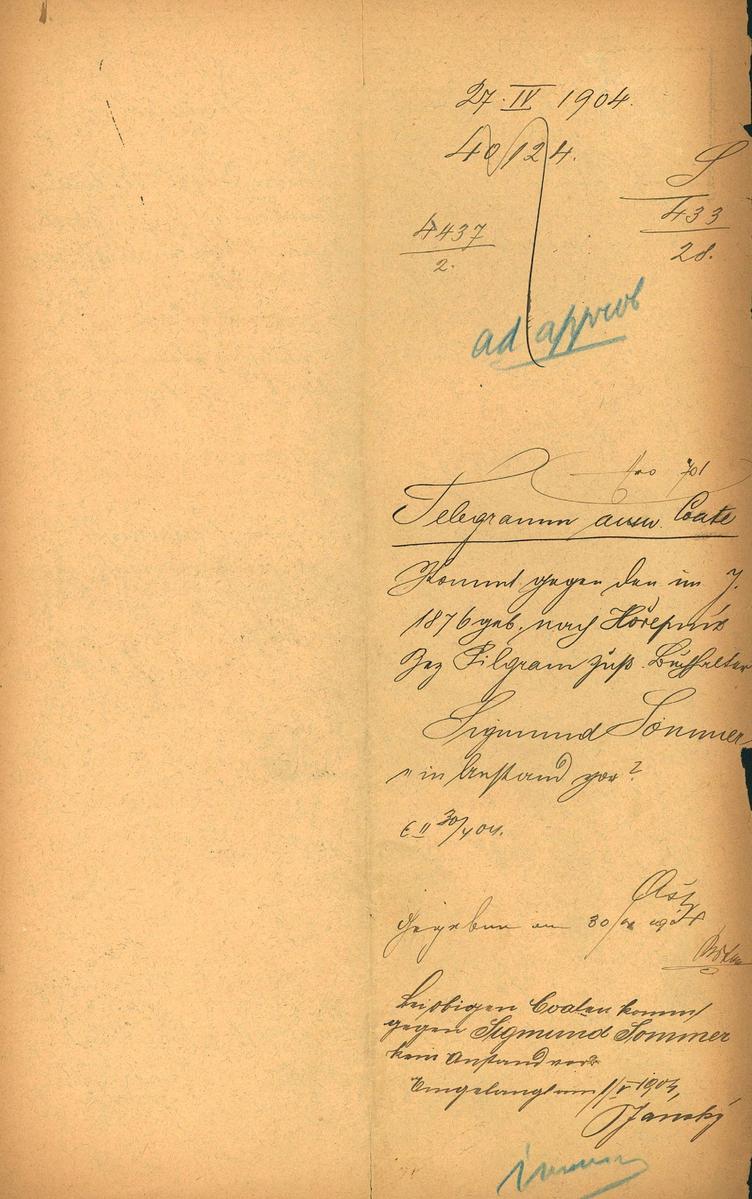 27. IV 1904.
40124.
S
433
28.
4437
2.
ad approb
701
Telegramm ausw. Coate
Kommt gegen den im J.
1876 geb. nach Hořepnik
Bez Pilgram zust. Buchhalter
Sigmund Sommer
ein Anstand vor?
30/4 04.
Gegeben am 30/4 1904
Bei obigen Coaten kommt
gegen Sigmund Sommer
kein Anstand vor
Eingelangt am 1/V 1904,
Janský